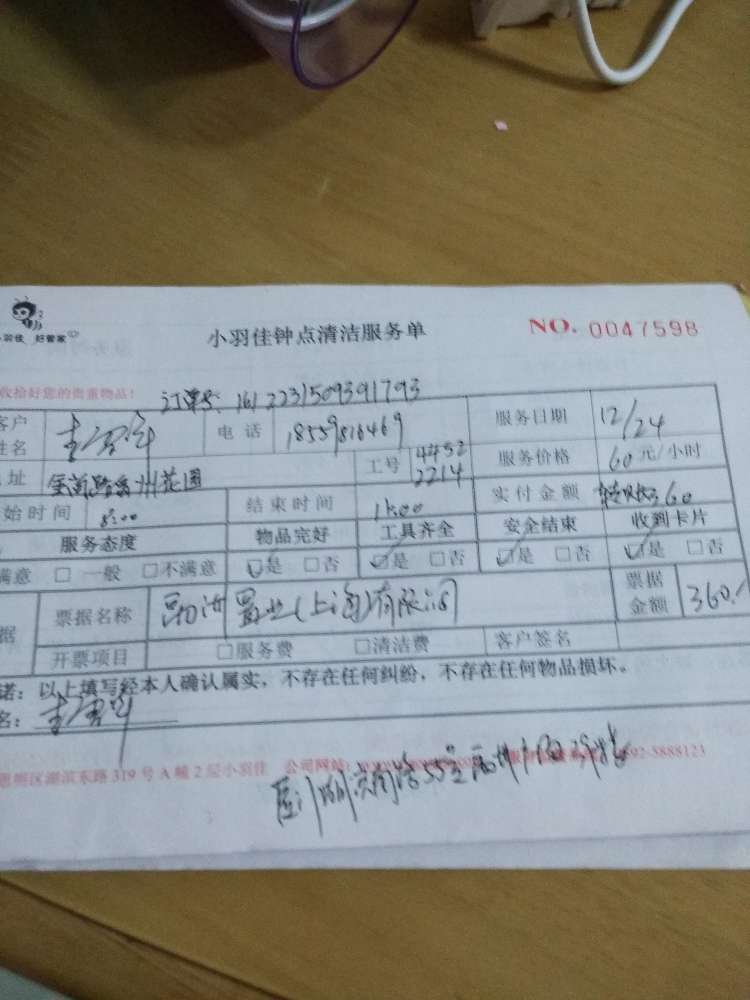 小羽佳 好管家
小羽佳钟点清洁服务单
NO. 0047598
收拾好您的贵重物品！
订单号: 161223150939 1793
客户姓名
电话 18559816469
服务日期 12/24
址
禹州花园
工号 4452 2214
服务价格 60元/小时
始时间 8:00
结束时间 11:00
实付金额 360
服务态度 物品完好 工具齐全 安全结束 收到卡片
满意 □ 一般 □不满意 ☑是 □否 ☑是 □否 ☑是 □否 ☑是 □否
据 票据名称 置业(上海)有限公司 票据金额 360.
开票项目 □服务费 □清洁费 客户签名
诺：以上填写经本人确认属实，不存在任何纠纷，不存在任何物品损坏。
名：
思明区湖滨东路319号A幢2层小羽佳 公司网站：
92-5888123
厦门